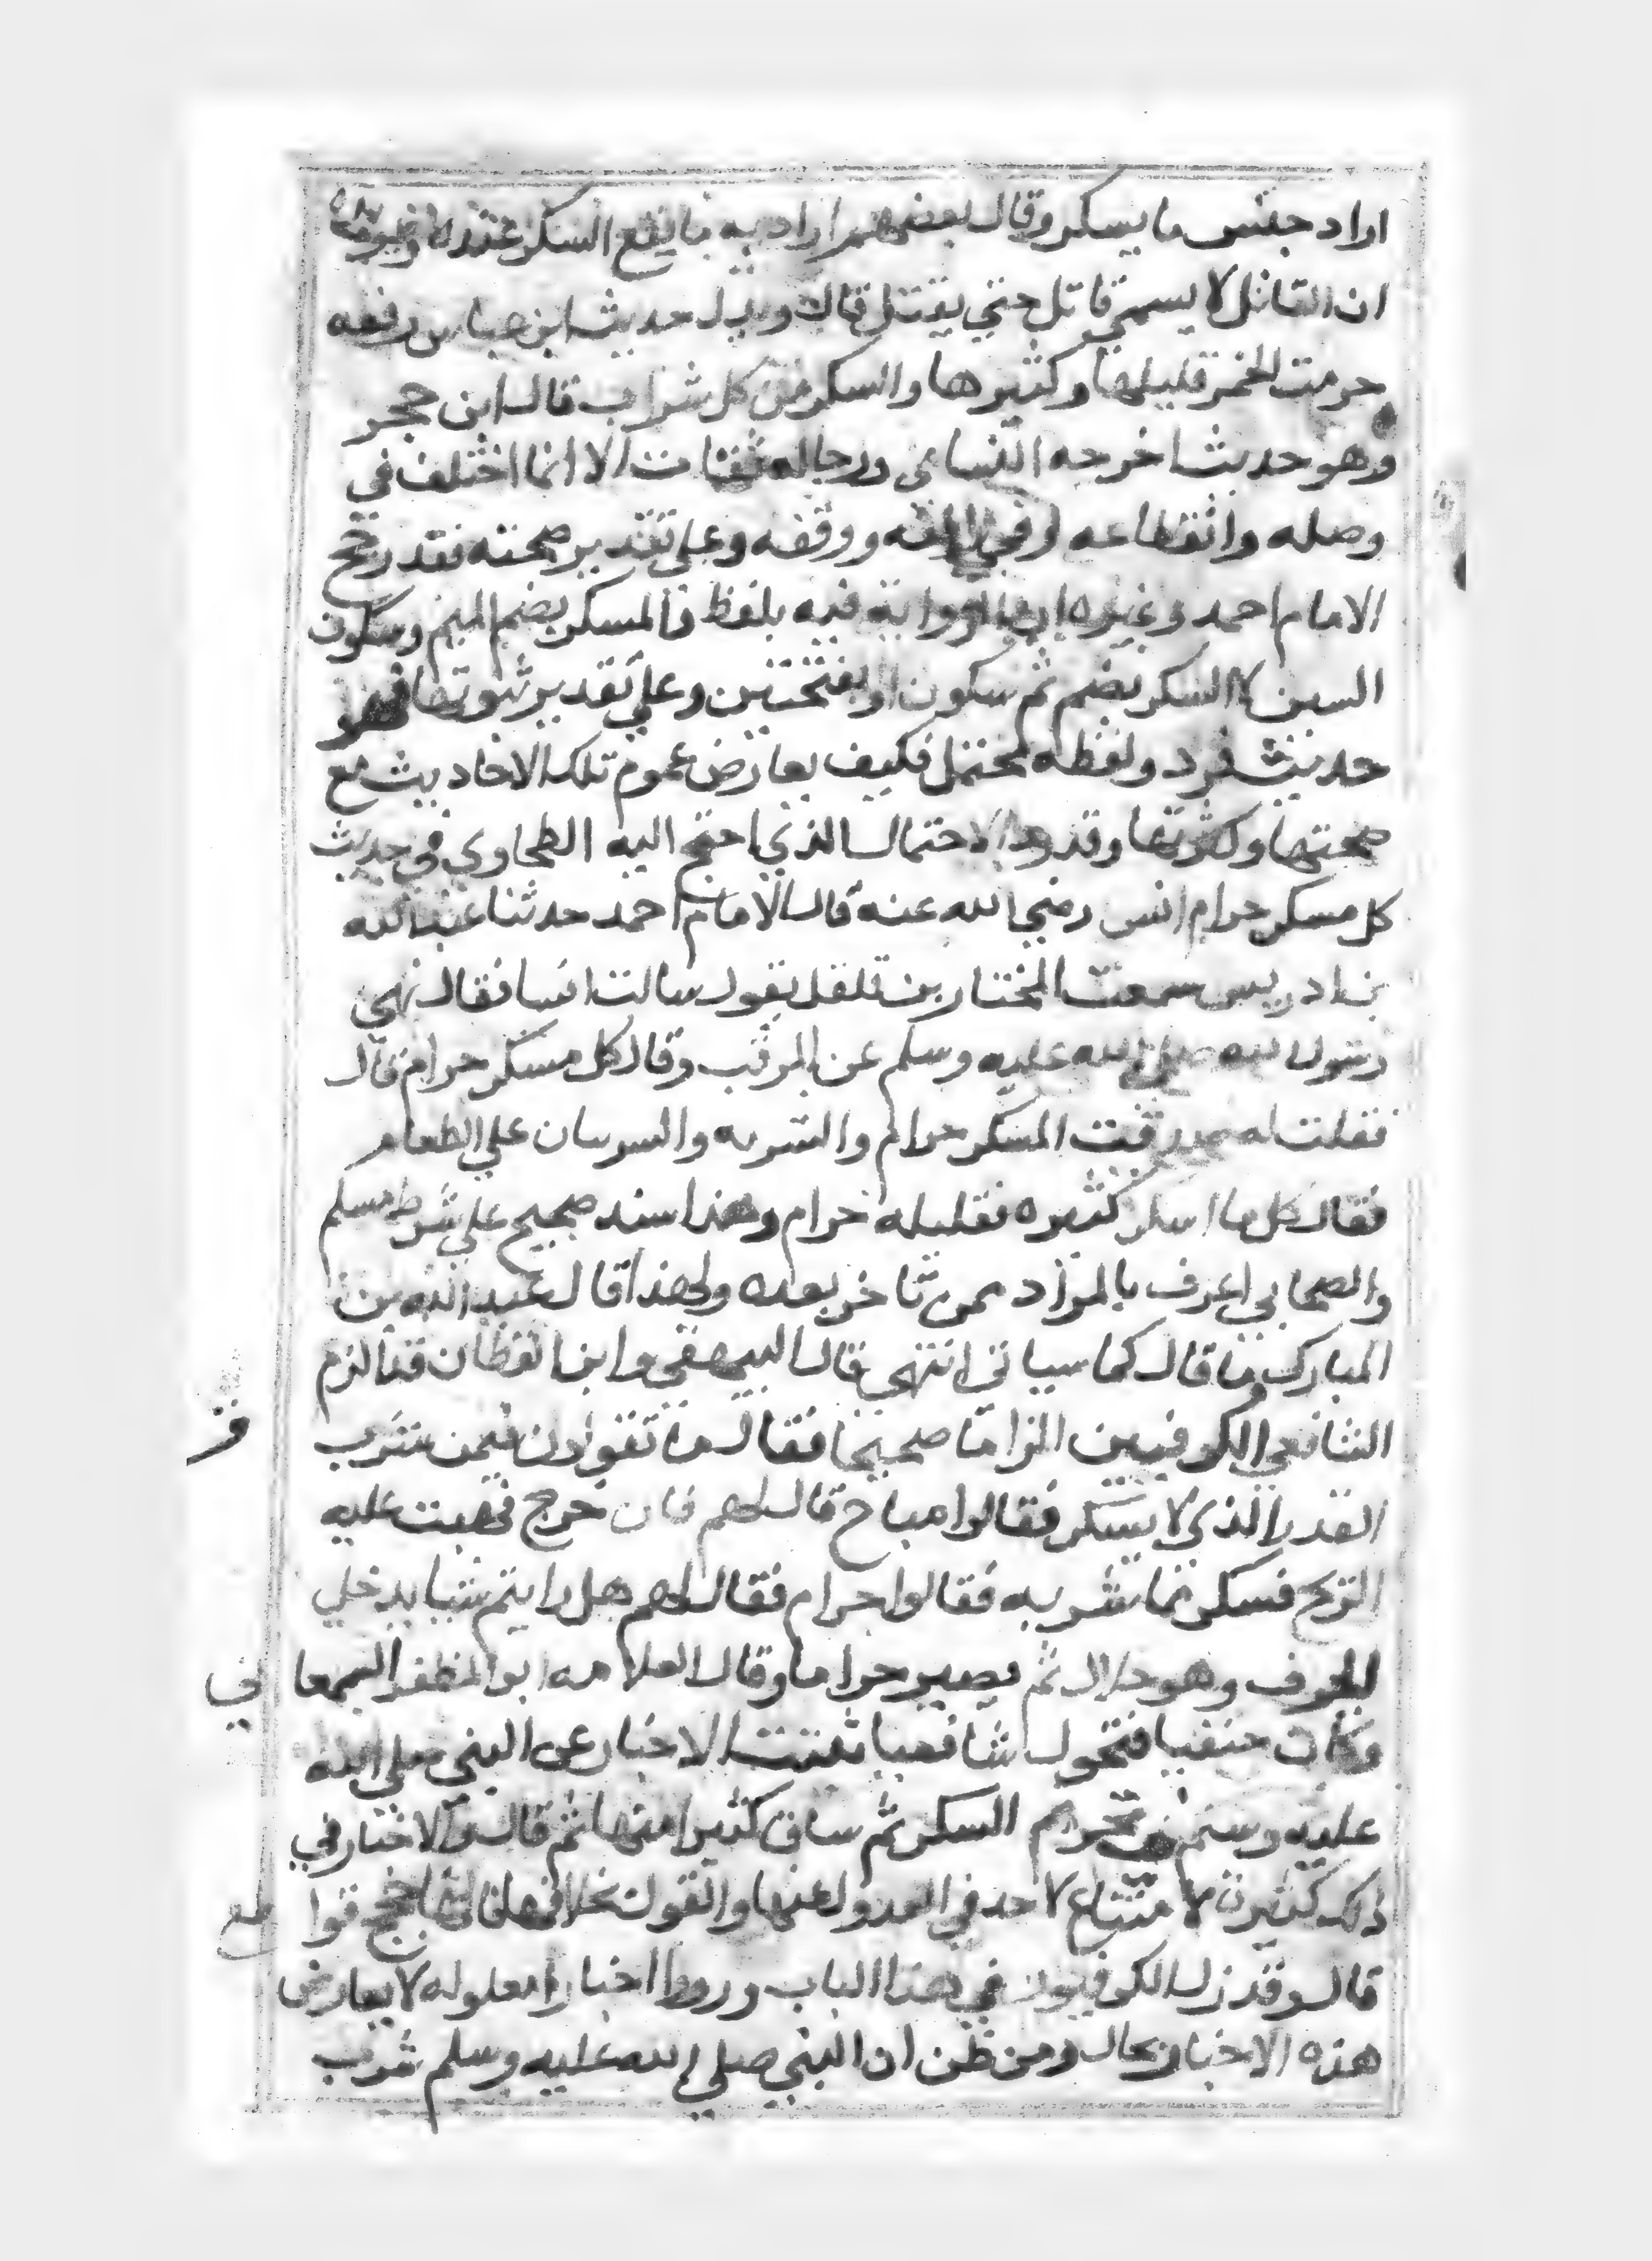 اراد جنس ما يسكر وقال بعضهم اراد به ما يقع السكر عنده
ان القاتل لا يسمي قاتل حتي يقتل قال ويدل حديث ابن عباس رفعه
حرمت الخمر قليلها وكثيرها والسكر من كل شراب قال ابن حجر
وهو حديث اخرجه النساي ورجاله ثقات الا انما اختلف في
وصله وانقطاعه وفي رفعه ووقفه وعلي تقدير صحته فقد رجح
الامام احمد وغيره ان الرواية فيه بلفظ فالمسكر بضم الميم وسكون
السين لا السكر بضم ثم سكون او بفتحتين وعلي تقدير ثبوتها فهو
حديث فرد ولفظه محتمل فكيف يعارض عموم تلك الاحاديث مع
صحتها وكثرتها وقد رد الاحتمال الذي احتج اليه الطحاوي في حديث
كل مسكر حرام انس رضي الله عنه قال الامام احمد حدثنا عبد الله
بن ادريس سمعت المختار بن فلفل يقول سالت انسا فقال نهي
رسول الله صلي الله عليه وسلم عن المزفت وقال كل مسكر حرام قال
فقلت له صدقت المسكر حرام والشربه والشربتان علي الطعام
فقال كل ما اسكر كثيره فقليله حرام وهذا سند صحيح علي شرط مسلم
والصحابي اعرف بالمراد ممن تاخر بعده ولهذا قال عبد الله بن
المبارك ما قال كما سياتي انتهي قال البيهقي وابن القطان قد الزم
الشافعي الكوفيين الزاما صحيحا فقال ما تقولون فيمن شرب
القدر الذي لا يسكر فقالوا مباح قال لهم فان خرج فهبت عليه
الريح فسكر مما شربه فقالوا حرام فقال لهم هل رايتم شيا يدخل
الجوف وهو حلال ثم يصير حراما وقال العلامه ابو المظفر السمعاني
وكان حنفيا فتحول شافعيا ثبتت الاخبار عن النبي صلي الله
عليه وسلم في تحريم السكر ثم ساق كثيرا منها ثم قال والاخبار في
ذلك كثيرة لا متساع لاحد في العدول عنها والقول بخلافها فانها حجج قواطع
قال وقد زل الكوفيون في هذا الباب ورووا اخبارا معلوله لا يعارض
هذه الاخبار بحال ومن ظن ان النبي صلي الله عليه وسلم شرب